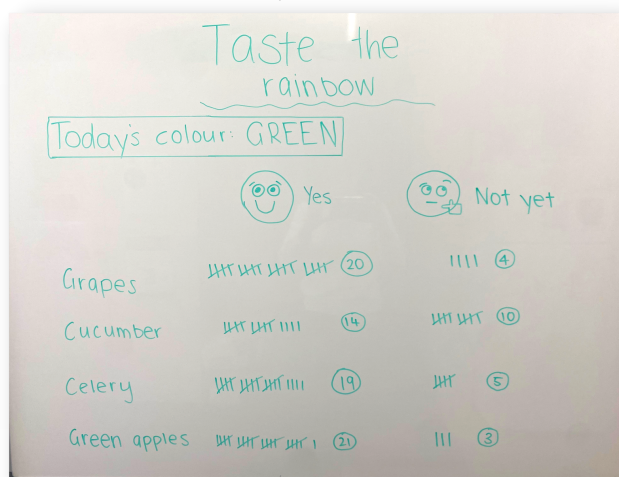 Taste the
rainbow
Today's colour: GREEN
Yes Not yet
Grapes 20 4
Cucumber 14 10
Celery 19 5
Green apples 21 3